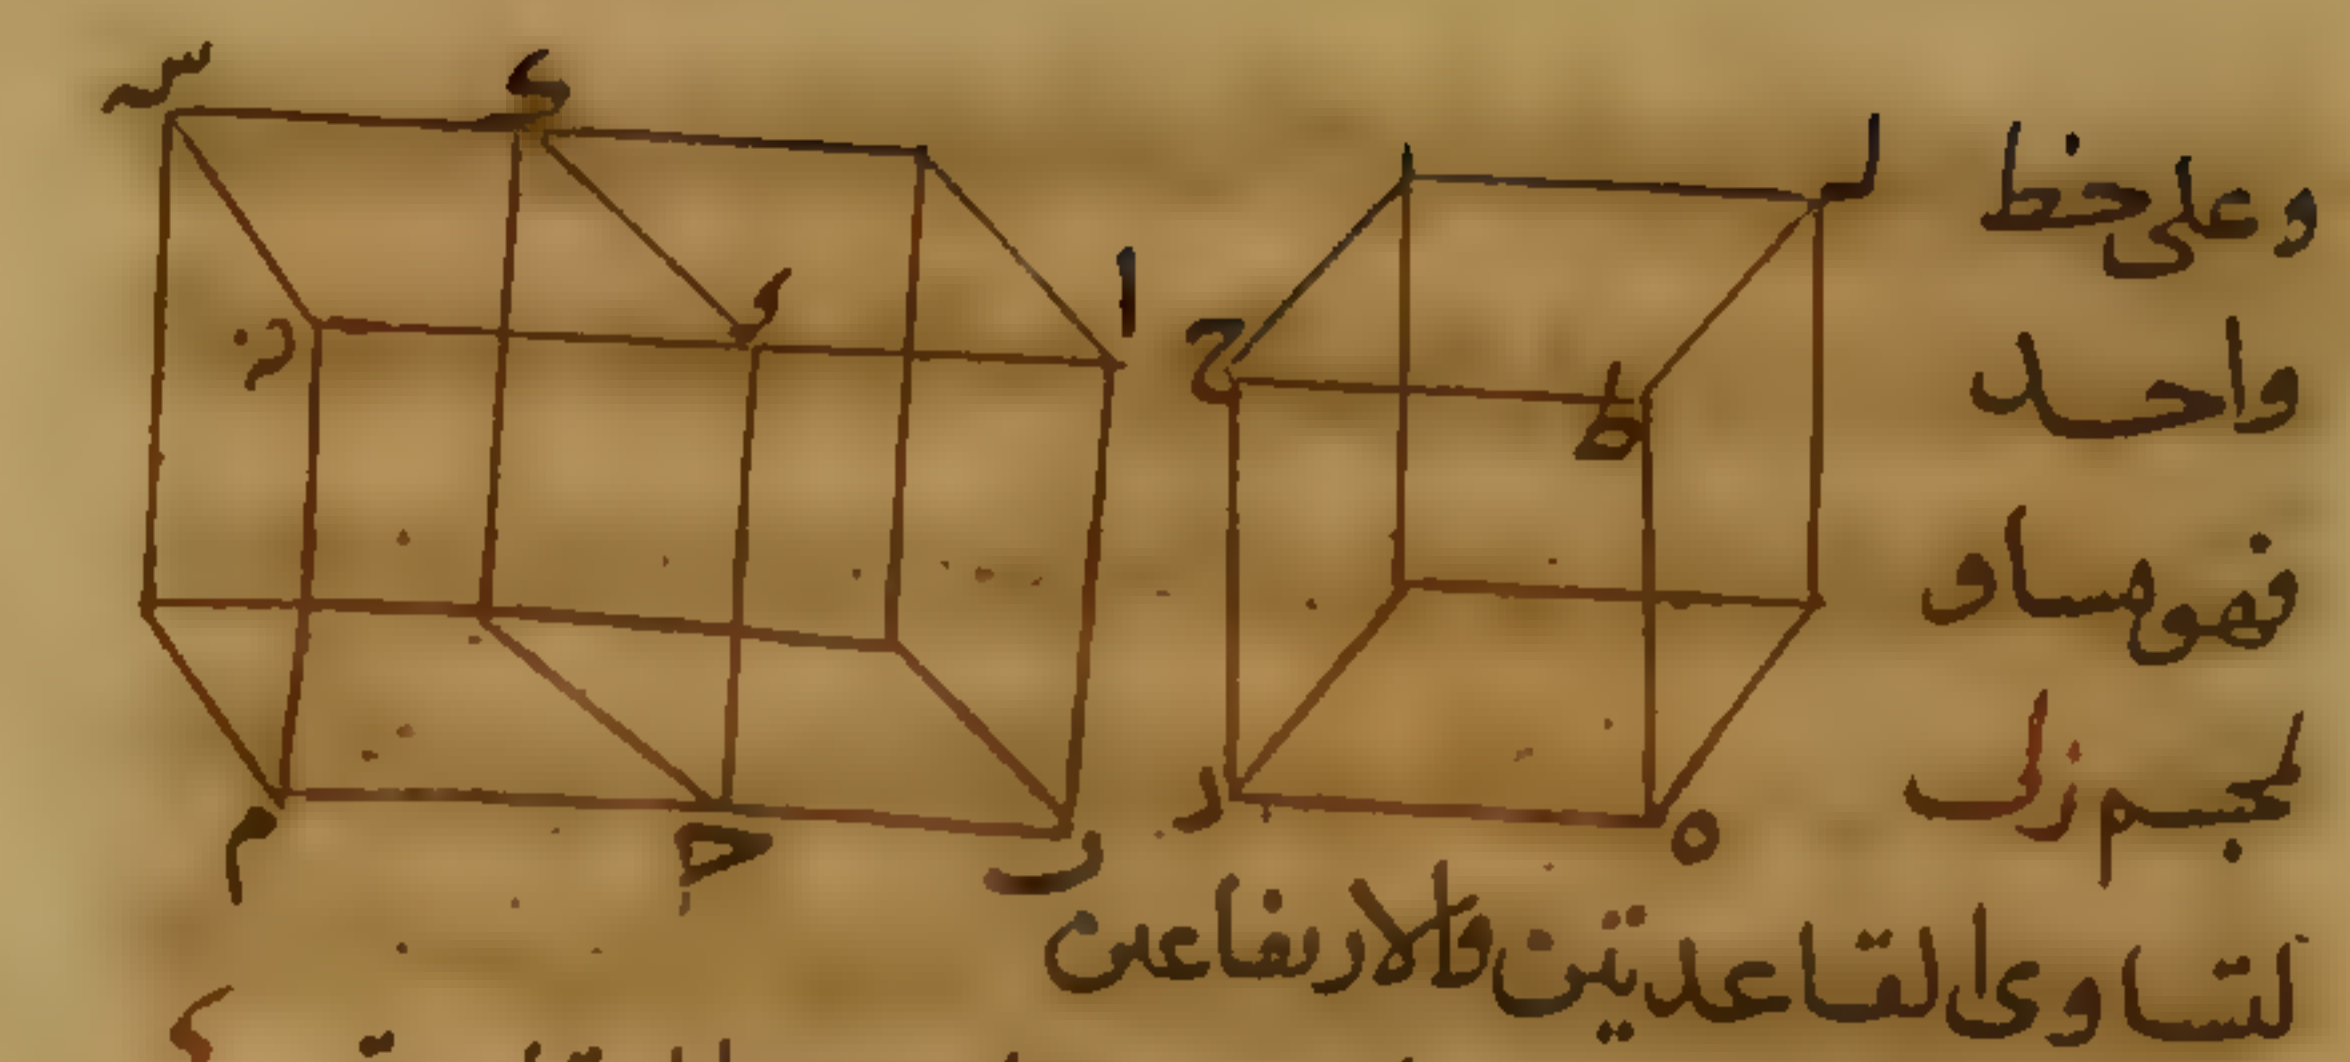 وعلى خط
واحد
فهو مساو
لمجسم زك
لتساوى القاعدتين والارتفاعين
س
ى
ل
ا
ح
ط
ر
ن
م
ب
د
ه